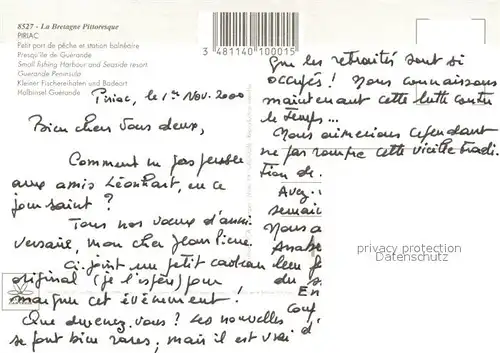 8527 - La Bretagne Pittoresque
PIRIAC
Petit port de pêche et station balnéaire
Presqu'île de Guérande
Small fishing Harbour and Seaside resort
Guerande Peninsula
Kleiner Fischereihafen und Badeort
Halbinsel Guerande
3 481140 100015
Piriac, le 1er Nov. 2000
Bien chers Vous deux,
Comment ne pas penser
aux amis Léonhart, en ce
jour saint ?
Tous nos vœux d'anni
versaire, mon cher Jean Pierre.
Ci-joint un petit cadeau
original (je l'espère) pour
marquer cet évènement !
Que devenez-vous ? Les nouvelles
se font bien rares, mais il est vrai d
que les retraités sont si
occupés ! Nous connaissons
maintenant cette lutte contre
le temps...
Nous aimerions cependant
ne pas rompre cette vieille tradi
tion de
Avez-v
semain
Nous a
leur f
du s
En
Couf
privacy protection
Datenschutz